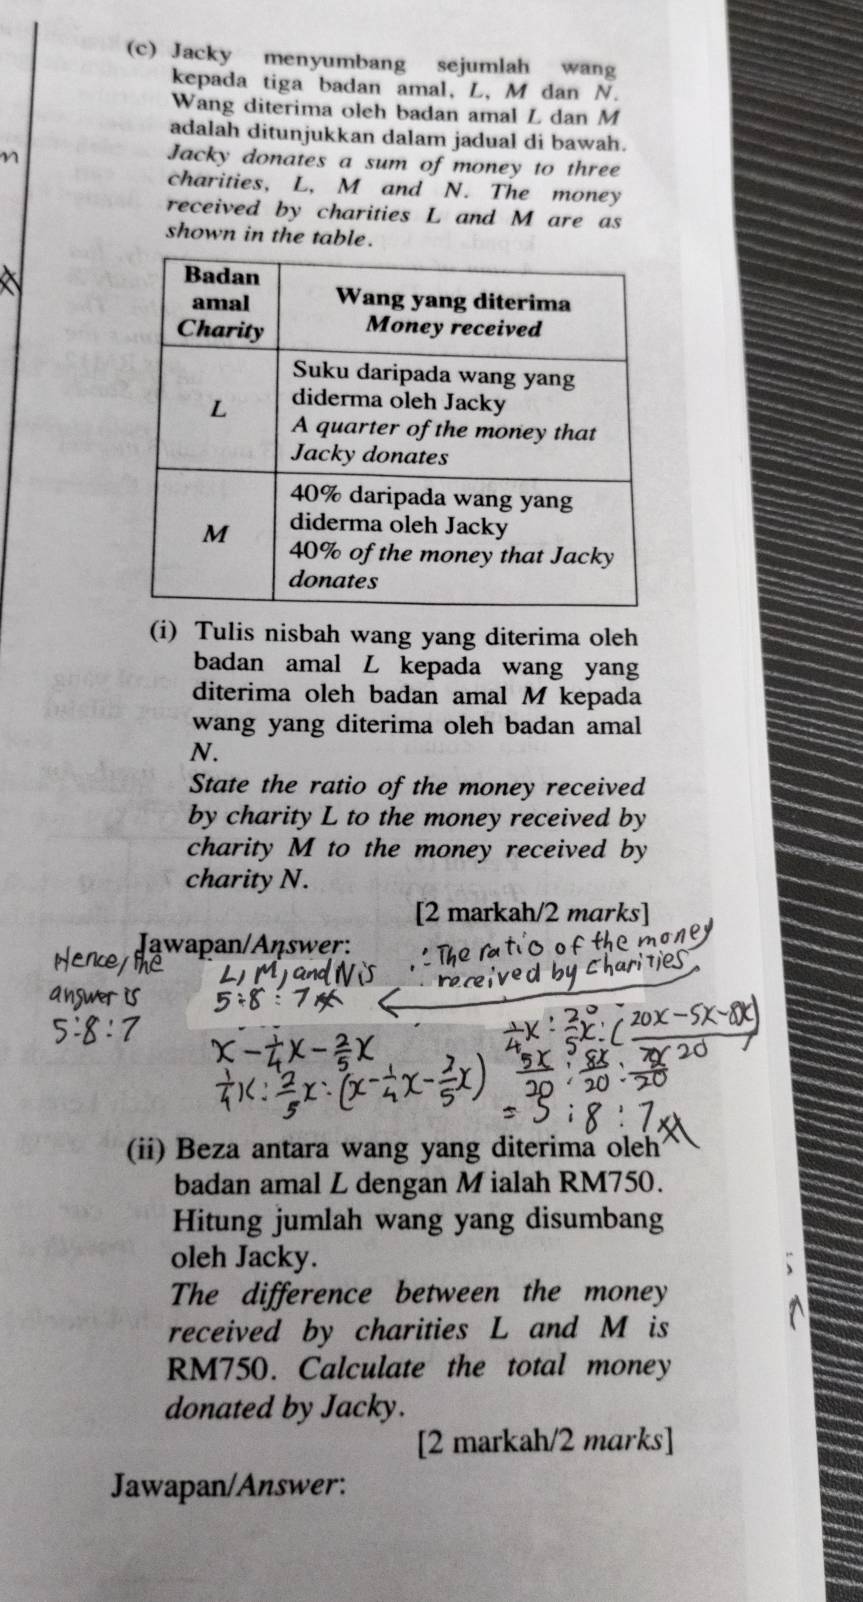 (c) Jacky menyumbang sejumlah wang
kepada tiga badan amal, L, M dan N.
Wang diterima oleh badan amal L dan M
adalah ditunjukkan dalam jadual di bawah.
Jacky donates a sum of money to three
charities, L, M and N. The money
received by charities L and M are as
shown in the table.
Badan
amal
Charity
Wang yang diterima
Money received
L
Suku daripada wang yang
diderma oleh Jacky
A quarter of the money that
Jacky donates
M
40% daripada wang yang
diderma oleh Jacky
40% of the money that Jacky
donates
(i) Tulis nisbah wang yang diterima oleh
badan amal L kepada wang yang
diterima oleh badan amal M kepada
wang yang diterima oleh badan amal
N.
State the ratio of the money received
by charity L to the money received by
charity M to the money received by
charity N.
[2 markah/2 marks]
Jawapan/Answer:
Hence, the
answer is
5:8:7
∴ The ratio of the money
received by charities
L, M, and N is
5:8:7
x - 1/4x - 2/5x
1/4x : 2/5x : (x - 1/4x - 2/5x)
1/4x : 2/5x : (20x-5x-8x)/20
5x/20 : 8x/20 : 7x/20
= 5:8:7
(ii) Beza antara wang yang diterima oleh
badan amal L dengan M ialah RM750.
Hitung jumlah wang yang disumbang
oleh Jacky.
The difference between the money
received by charities L and M is
RM750. Calculate the total money
donated by Jacky.
[2 markah/2 marks]
Jawapan/Answer: